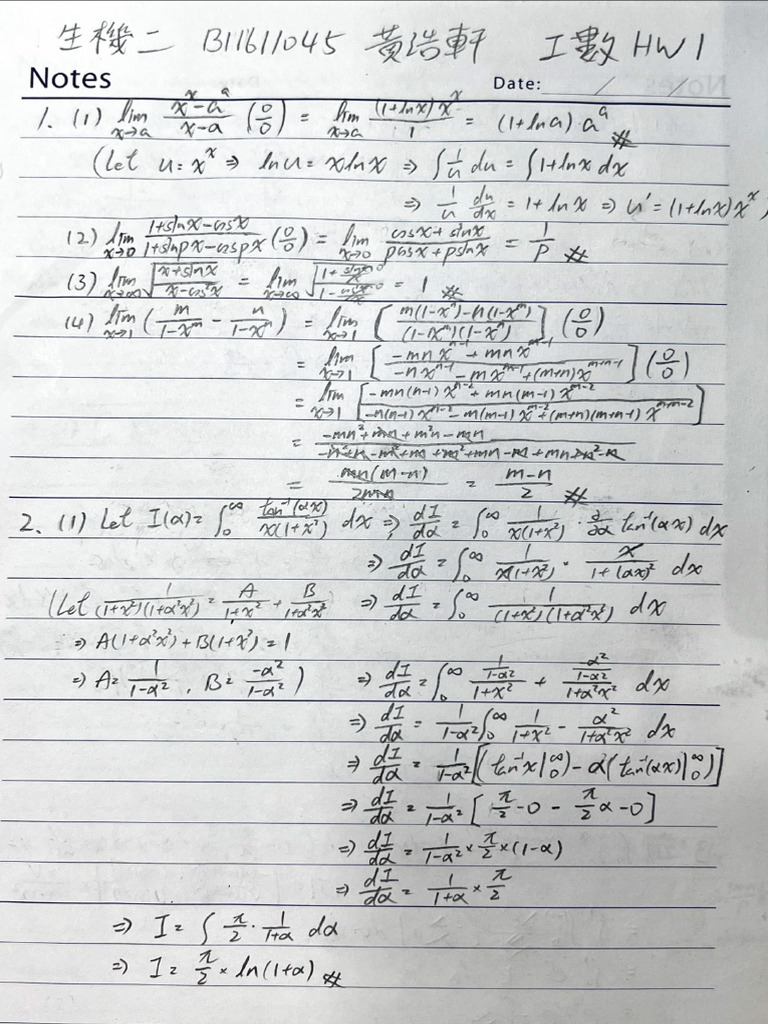 生機二 B11611045 黃浩軒 工數 HW1
Notes Date: / /
1. (1) lim x→a (x^x - a^a)/(x-a) (0/0) = lim x→a ((1+lnx)x^x)/1 = (1+lna)·a^a #
(Let u = x^x ⇒ lnu = xlnx ⇒ ∫ 1/u du = ∫ 1+lnx dx
⇒ 1/u du/dx = 1+lnx ⇒ u' = (1+lnx)x^x)
(2) lim x→0 (1+sinx-cosx)/(1+sinpx-cospx) (0/0) = lim x→0 (cosx+sinx)/(pcosx+psinx) = 1/p #
(3) lim x→∞ √((x+sinx)/(x-cos²x)) = lim x→∞ √((1+sinx/x)/(1-cos²x/x)) = 1 #
(4) lim x→1 (m/(1-x^m) - n/(1-x^n)) = lim x→1 [(m(1-x^n)-n(1-x^m))/((1-x^m)(1-x^n))] (0/0)
= lim x→1 [(-mnx^(n-1)+mnx^(m-1))/(-nx^(n-1)-mx^(m-1)+(m+n)x^(m+n-1))] (0/0)
= lim x→1 [(-mn(n-1)x^(n-2)+mn(m-1)x^(m-2))/(-n(n-1)x^(n-2)-m(m-1)x^(m-2)+(m+n)(m+n-1)x^(m+n-2))]
= (-mn²+mn+m²n-mn)/(-n²+n-m²+m+m²+mn-m+mn+n²-n)
= mn(m-n)/2mn = (m-n)/2 #
2. (1) Let I(α) = ∫₀^∞ tan⁻¹(αx)/(x(1+x²)) dx ⇒ dI/dα = ∫₀^∞ 1/(x(1+x²)) · ∂/∂α tan⁻¹(αx) dx
⇒ dI/dα = ∫₀^∞ 1/(x(1+x²)) · x/(1+(αx)²) dx
(Let 1/((1+x²)(1+α²x²)) = A/(1+x²) + B/(1+α²x²) ⇒ dI/dα = ∫₀^∞ 1/((1+x²)(1+α²x²)) dx
⇒ A(1+α²x²)+B(1+x²) = 1
⇒ A = 1/(1-α²), B = -α²/(1-α²)) ⇒ dI/dα = ∫₀^∞ (1/(1-α²))/(1+x²) + (-α²/(1-α²))/(1+α²x²) dx
⇒ dI/dα = 1/(1-α²) ∫₀^∞ 1/(1+x²) - α²/(1+α²x²) dx
⇒ dI/dα = 1/(1-α²) [(tan⁻¹x|₀^∞) - α(tan⁻¹(αx)|₀^∞)]
⇒ dI/dα = 1/(1-α²) [π/2 - 0 - π/2 α - 0]
⇒ dI/dα = 1/(1-α²) × π/2 × (1-α)
⇒ dI/dα = 1/(1+α) × π/2
⇒ I = ∫ π/2 · 1/(1+α) dα
⇒ I = π/2 × ln(1+α) #